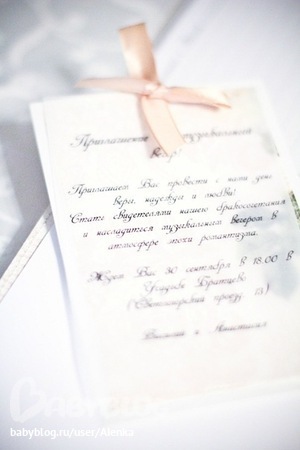 Приглашение на музыкальный
вечер
Приглашаем Вас провести с нами день
веры, надежды и любви!
Стать свидетелями нашего бракосочетания
и насладиться музыкальным вечером в
атмосфере эпохи романтизма.
Ждем Вас 30 сентября в 18.00 в
Усадьбе Братцево
(Светлогорский проезд, 13)
и Анастасия
babyblog.ru/user/Alenka